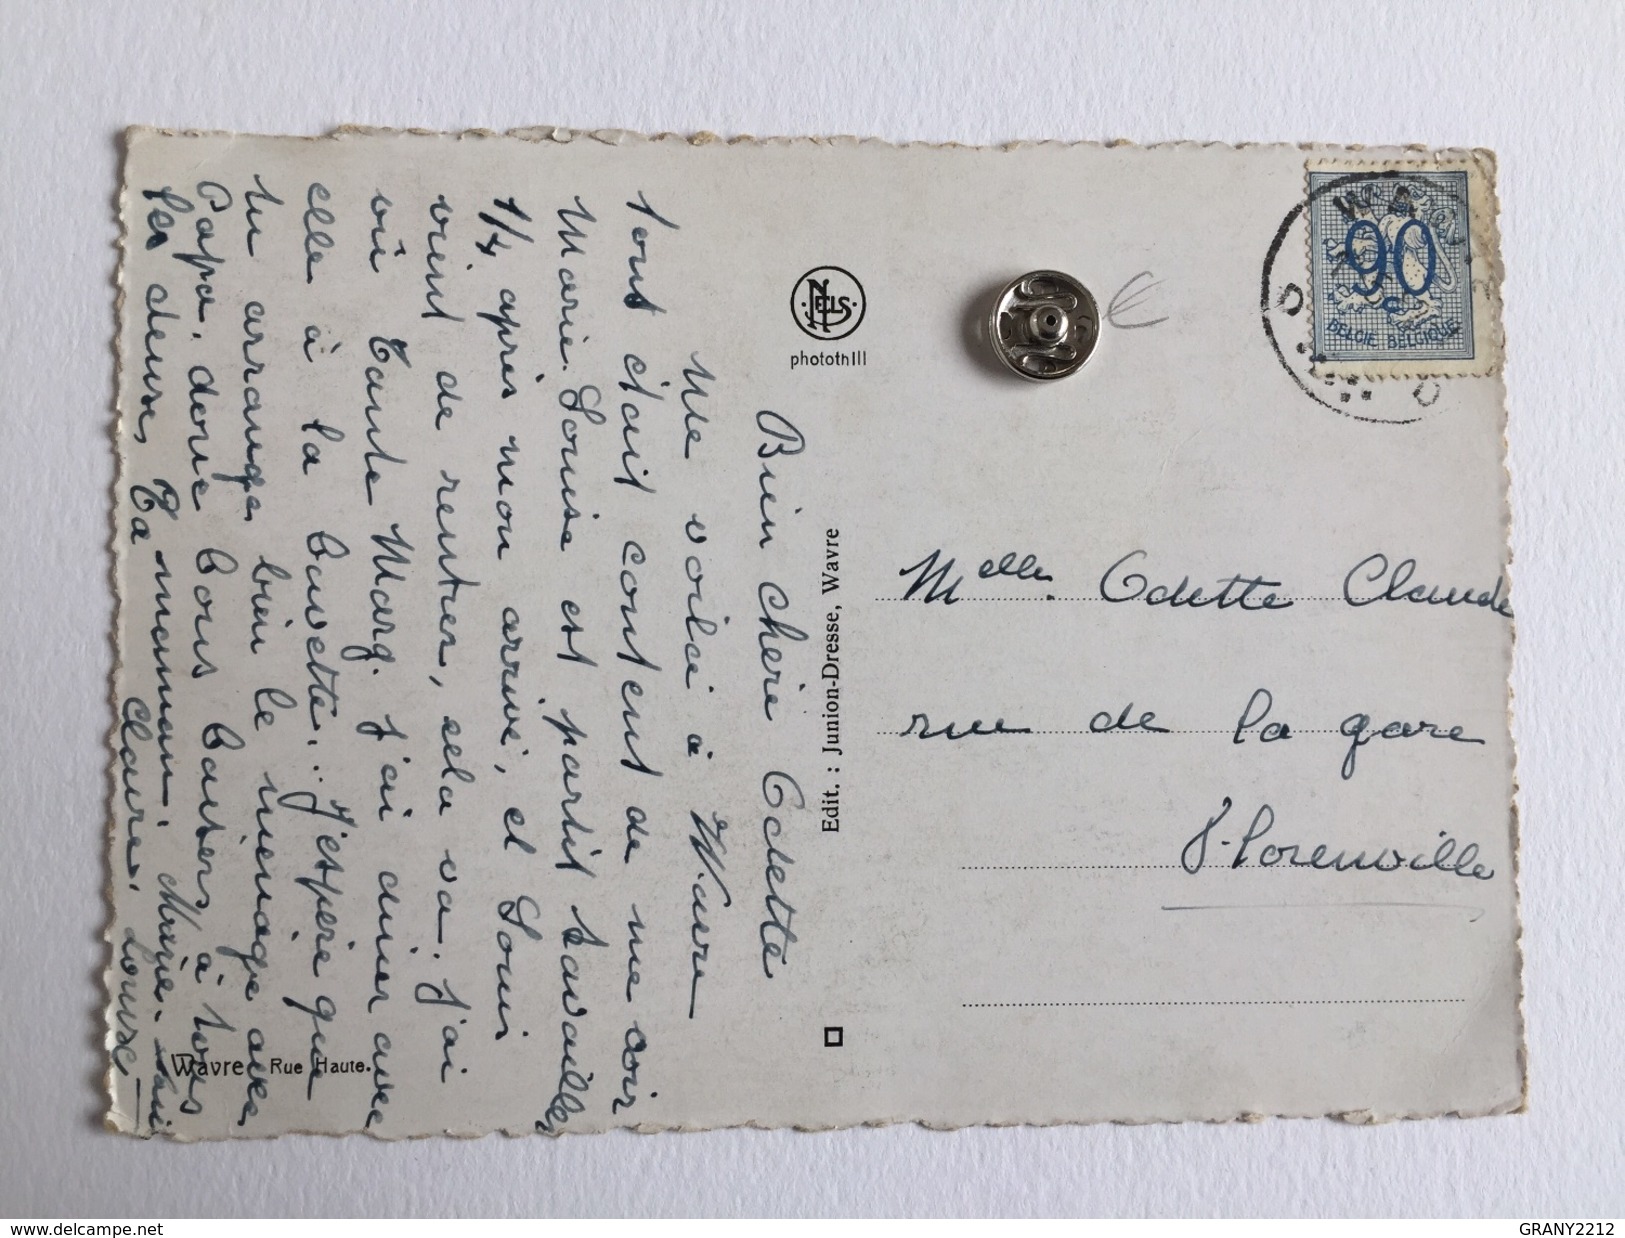 Bien chère Odette
Me voilci à Wavre
tout était content de me voir
Marie. Louise est partit travailler
1/4 après mon arrivé, et Loui
vient de rentrer, cela va. J'ai
vû Tante Marg. j'ai diner avec
elle à la buvette... J'espère que
tu arranges bien le ménage avec
Papa, donc bons baisers à tous
les deux, Ta maman. Marie-
Claire. Louise
Wavre Rue Haute.
NELS
photothill
Edit. : Junion-Dresse, Wavre
WAV
90
BELGIE BELGIQUE
Melle. Odette Claude
rue de la gare
€
www.delcampe.net
GRANY2212